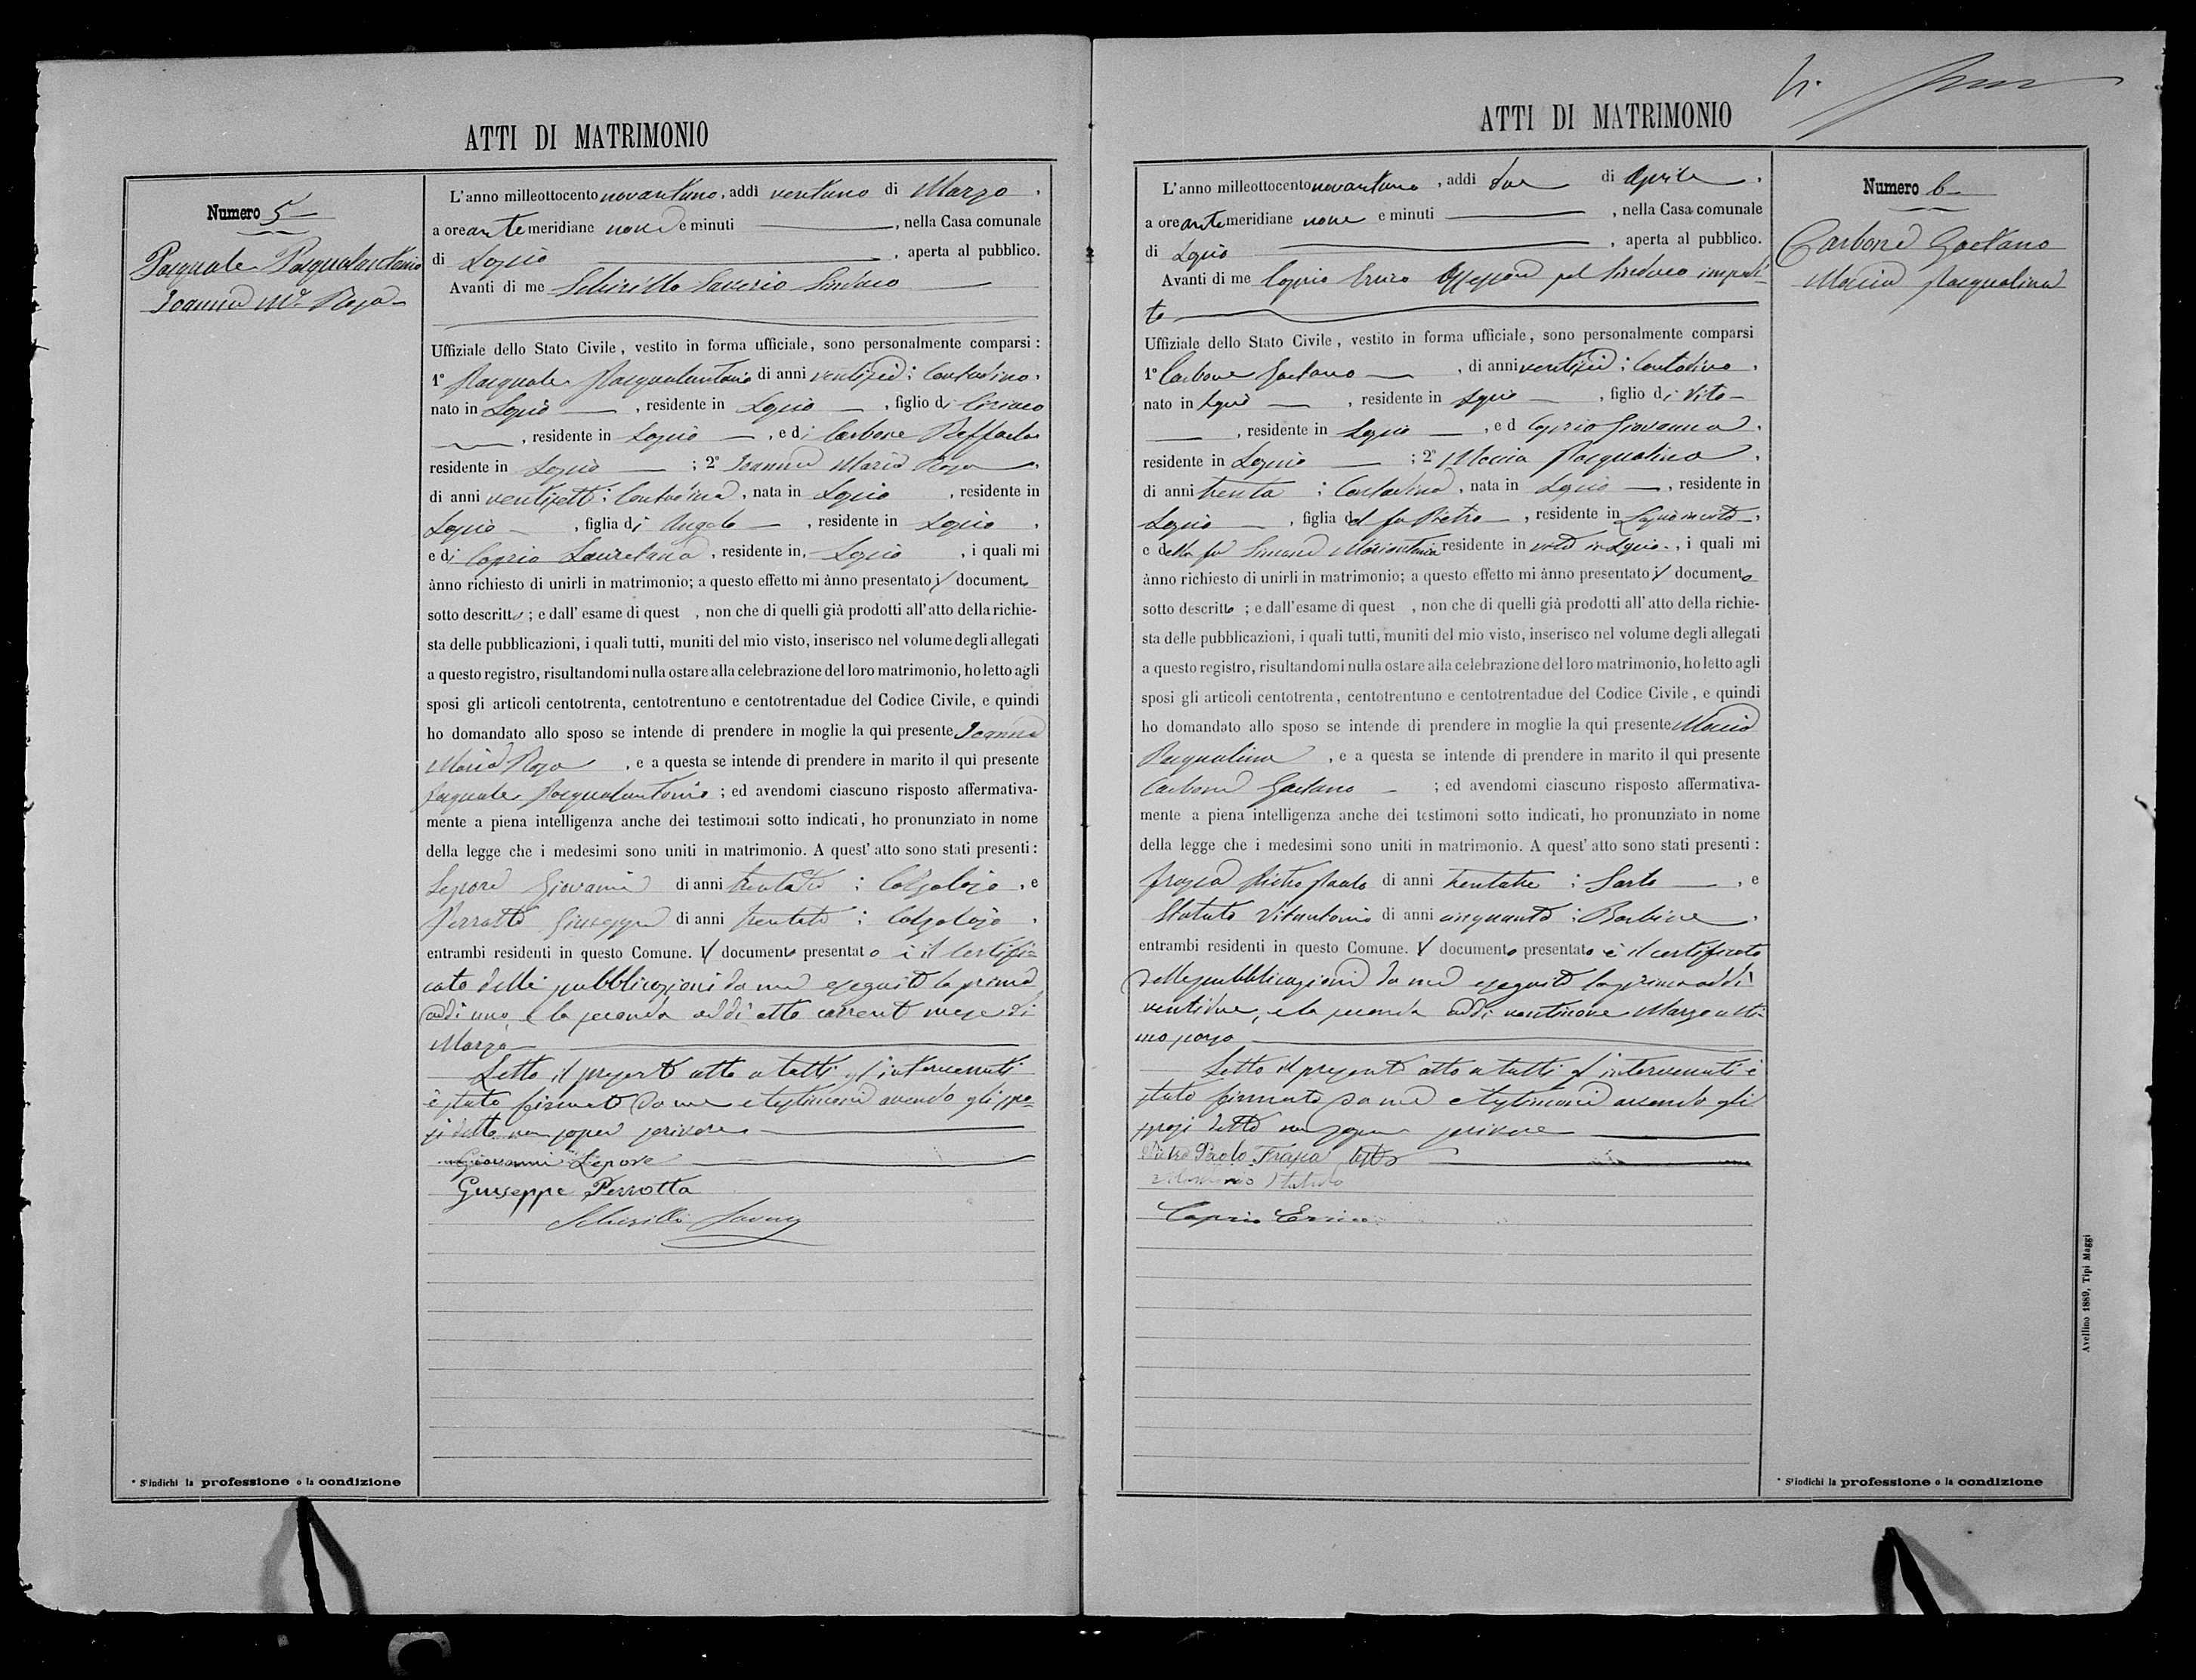 ATTI DI MATRIMONIO
Numero 5
Pasquale Pasqualantonio
Ioanna M.ª Rosa
L'anno milleottocento novantuno, addì ventuno di Marzo,
a ore antemeridiane nove e minuti , nella Casa comunale
di Lapio , aperta al pubblico.
Avanti di me Schirillo Saverio Sindaco
Uffiziale dello Stato Civile, vestito in forma ufficiale, sono personalmente comparsi:
1° Pasquale Pasqualantonio di anni ventisei; Contadino,
nato in Lapio , residente in Lapio , figlio di Ciriaco
, residente in Lapio , e di Carbone Raffaela
residente in Lapio ; 2° Ioanna Maria Rosa ,
di anni ventisette; Contadina, nata in Lapio , residente in
Lapio , figlia di Angelo , residente in Lapio ,
e di Caprio Lauretana, residente in Lapio , i quali mi
ànno richiesto di unirli in matrimonio; a questo effetto mi ànno presentato il documento
sotto descritto; e dall'esame di quest , non che di quelli già prodotti all'atto della richie-
sta delle pubblicazioni, i quali tutti, muniti del mio visto, inserisco nel volume degli allegati
a questo registro, risultandomi nulla ostare alla celebrazione del loro matrimonio, ho letto agli
sposi gli articoli centotrenta, centotrentuno e centotrentadue del Codice Civile, e quindi
ho domandato allo sposo se intende di prendere in moglie la qui presente Ioanna
Maria Rosa , e a questa se intende di prendere in marito il qui presente
Pasquale Pasqualantonio; ed avendomi ciascuno risposto affermativa-
mente a piena intelligenza anche dei testimoni sotto indicati, ho pronunziato in nome
della legge che i medesimi sono uniti in matrimonio. A quest'atto sono stati presenti:
Lepore Giovanni di anni ; Calzolajo, e
Perrotta Giuseppe di anni ; Calzolajo,
entrambi residenti in questo Comune. Il documento presentato è il certifi=
cato delle pubblicazioni da me eseguite la prima
addì uno, e la seconda addì otto corrente mese di
Marzo
Letto il presente atto a tutti gl'intervenuti
è stato firmato da me e testimoni avendo gli spo=
si detto non saper scrivere
Giovanni Lepore
Giuseppe Perrotta
Schirillo Saverio
ATTI DI MATRIMONIO
Numero 6
Carbone Gaetano
Maccia Pasqualina
L'anno milleottocento novantuno, addì due di Aprile,
a ore antemeridiane nove e minuti , nella Casa comunale
di Lapio , aperta al pubblico.
Avanti di me Caprio Errico Assessore pel Sindaco impedi-
to
Uffiziale dello Stato Civile, vestito in forma ufficiale, sono personalmente comparsi
1° Carbone Gaetano , di anni ventisei; Contadino,
nato in Lapio , residente in Lapio , figlio di Vito
, residente in Lapio , e d Caprio Giovanna,
residente in Lapio ; 2° Maccia Pasqualina,
di anni trenta ; Contadina, nata in Lapio , residente in
Lapio , figlia del fu Pietro , residente in Lapio in vita,
e della fu Simone Mariantonia residente in vita in Lapio, i quali mi
ànno richiesto di unirli in matrimonio; a questo effetto mi ànno presentato il documento
sotto descritto; e dall'esame di quest , non che di quelli già prodotti all'atto della richie-
sta delle pubblicazioni, i quali tutti, muniti del mio visto, inserisco nel volume degli allegati
a questo registro, risultandomi nulla ostare alla celebrazione del loro matrimonio, ho letto agli
sposi gli articoli centotrenta, centotrentuno e centotrentadue del Codice Civile, e quindi
ho domandato allo sposo se intende di prendere in moglie la qui presente Maccia
Pasqualina , e a questa se intende di prendere in marito il qui presente
Carbone Gaetano ; ed avendomi ciascuno risposto affermativa-
mente a piena intelligenza anche dei testimoni sotto indicati, ho pronunziato in nome
della legge che i medesimi sono uniti in matrimonio. A quest'atto sono stati presenti:
Frasca Pietro Paolo di anni trentatre; Sarto , e
Statuto Vitantonio di anni cinquanta; Barbiere,
entrambi residenti in questo Comune. Il documento presentato è il certificato
delle pubblicazioni da me eseguite la prima addì
ventidue, e la seconda addì ventinove Marzo ulti-
mo scorso
Letto il presente atto a tutti gl'intervenuti è
stato firmato da me e testimoni avendo gli
sposi detto non sapere scrivere
Pietro Paolo Frasca
Statuto
Caprio Errico
* S'indichi la professione o la condizione
* S'indichi la professione o la condizione
Avellino 1889, Tipi Maggi